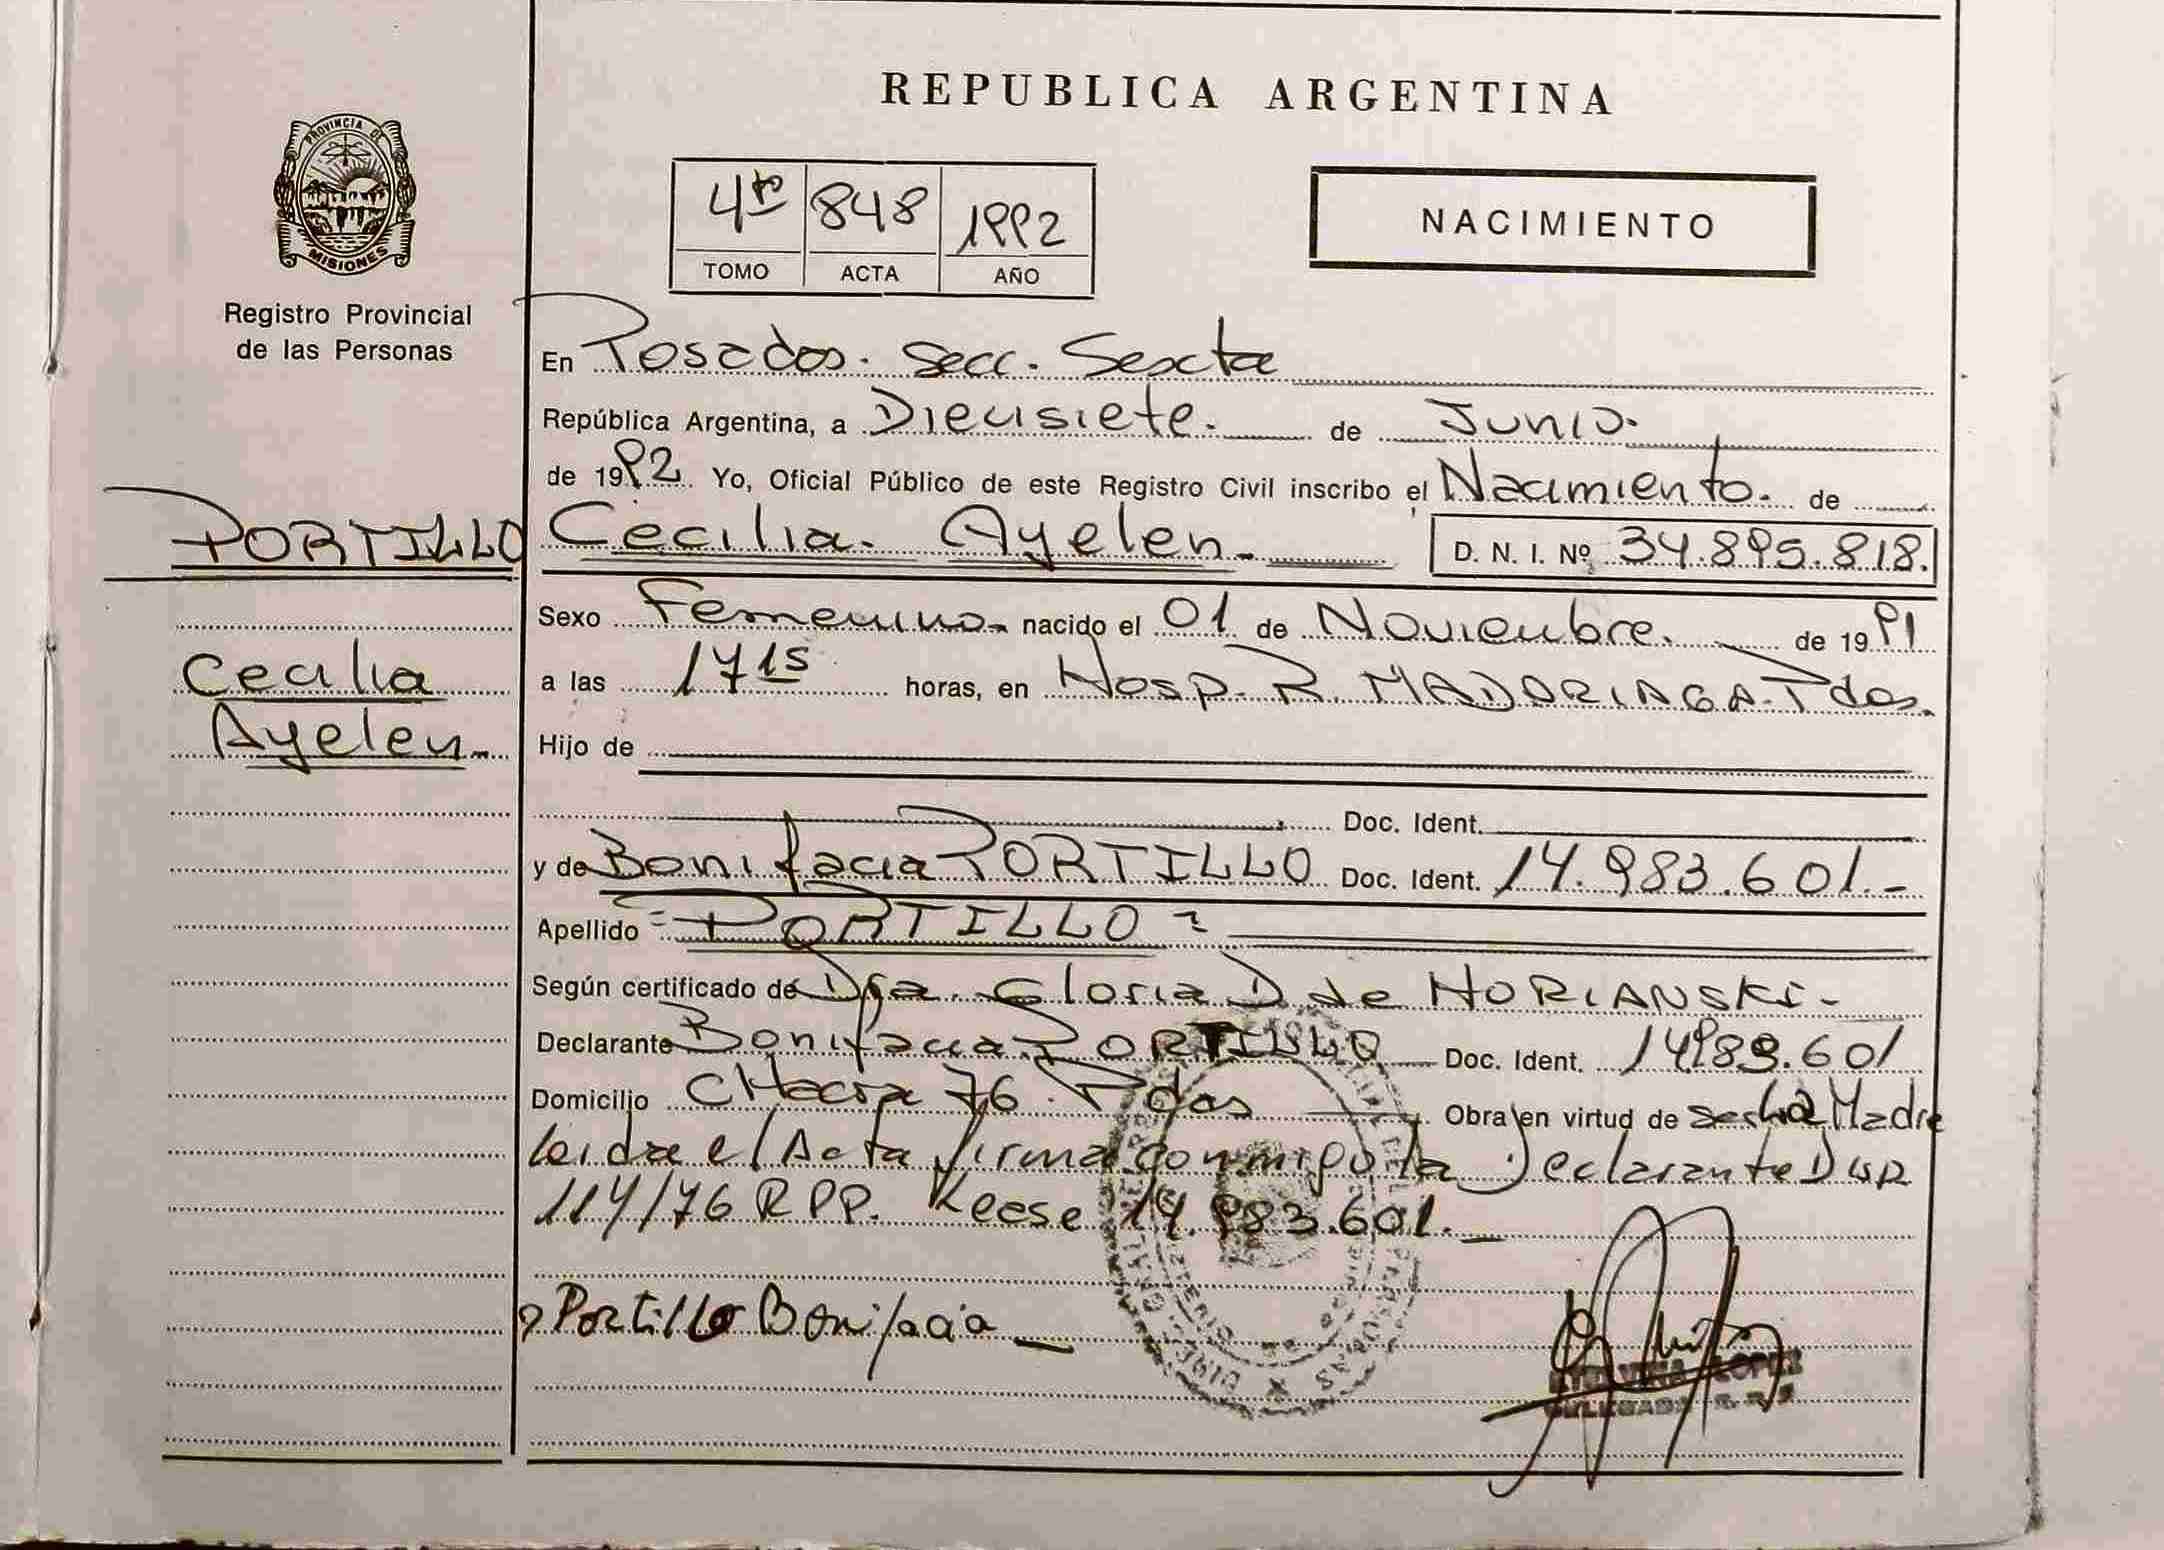 REPUBLICA ARGENTINA
PROVINCIA DE
MISIONES
Registro Provincial
de las Personas
4to 848 1992
TOMO ACTA AÑO
NACIMIENTO
En Posadas. Secc. Sexta
República Argentina, a Diecisiete. de Junio.
de 1992 Yo, Oficial Público de este Registro Civil inscribo el Nacimiento. de
PORTILLO Cecilia. Ayelen. D. N. I. Nº 34.895.818.
Sexo Femenino. nacido el 01 de Noviembre. de 1991
Cecilia
Ayelen.
a las 17 15 horas, en Hosp. R. MADARIAGA. Pdas.
Hijo de
Doc. Ident.
y de Bonifacia PORTILLO Doc. Ident. 14.983.601.-
Apellido = PORTILLO =
Según certificado de Dra. Gloria D de HORIANSKI-
Declarante Bonifacia PORTILLO Doc. Ident. 14983.601
Domicilio CHacra 76. Pdas Obra en virtud de ser la Madre
Leida el Acta firma conmigo la Declarante Disp
114/76 RPP. 14.983.601.
Portillo Bonifacia
LOPEZ
DELEGADA R.P.P.